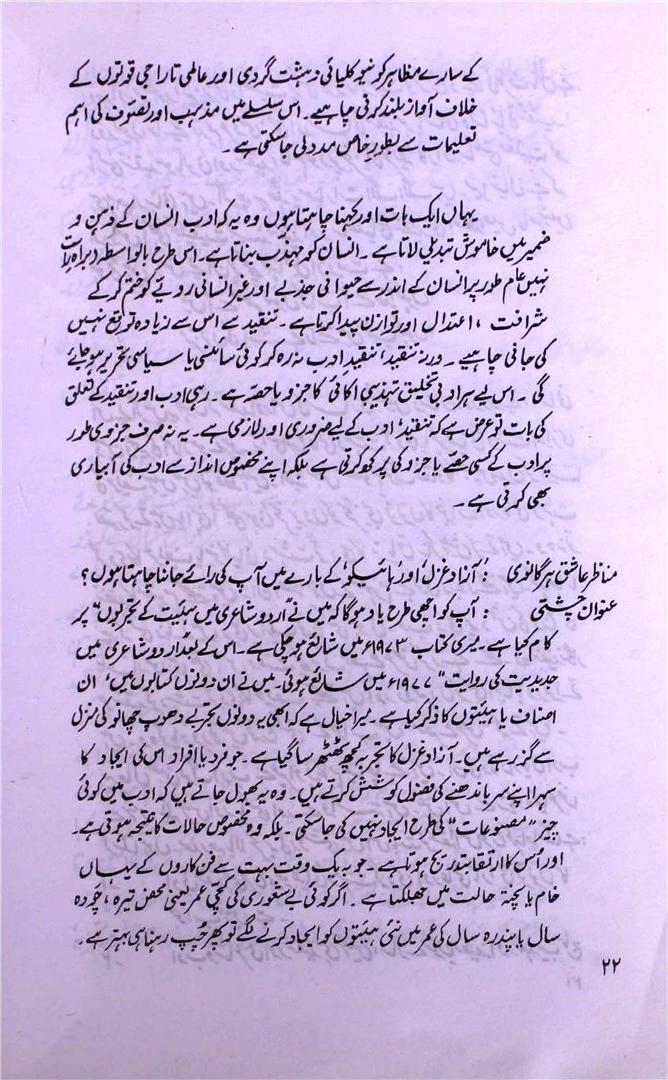 کے سارے مظاہر کو نیوکلیائی دہشت گردی اور عالمی تاراجی قوتوں کے
خلاف آواز بلند کرنی چاہیے۔ اس سلسلے میں مذہب اور تصوف کی اہم
تعلیمات سے بطورِ خاص مدد لی جاسکتی ہے۔
یہاں ایک بات اور کہنا چاہتا ہوں وہ یہ کہ ادب انسان کے ذہن و
ضمیر میں خاموش تبدیلی لاتا ہے۔ انسان کو مہذّب بناتا ہے۔ اس طرح بالواسطہ (براہِ راست
نہیں) عام طور پر انسان کے اندر سے حیوانی جذبے اور غیر انسانی رویے کو ختم کر کے
شرافت، اعتدال اور توازن پیدا کرتا ہے۔ تنقید سے اس سے زیادہ توقع نہیں
کی جانی چاہیے۔ ورنہ تنقید، تنقیدِ ادب نہ رہ کر کوئی سائنسی یا سیاسی تحریر ہوجائے
گی۔ اس لیے ہر ادبی تخلیق تہذیبی اکائی کا جزو یا حصّہ ہے۔ رہی ادب اور تنقید کے تعلق
کی بات تو عرض ہے کہ تنقید، ادب کے لیے ضروری اور لازمی ہے۔ یہ نہ صرف جزوی طور
پر ادب کے کسی حصّے یا جزو کی پرکھ کرتی ہے بلکہ اپنے مخصوص انداز سے ادب کی آبیاری
بھی کرتی ہے۔
مناظر عاشق ہرگانوی : 'آزاد غزل' اور 'ہائیکو' کے بارے میں آپ کی رائے جاننا چاہتا ہوں؟
عنوان چشتی : آپ کو اچھی طرح یاد ہوگا کہ میں نے "اردو شاعری میں ہیئت کے تجربوں" پر
کام کیا ہے۔ میری کتاب ۱۹۷۳ء میں شائع ہوچکی ہے۔ اس کے بعد "اردو شاعری میں
جدیدیت کی روایت" ۱۹۷۷ء میں شائع ہوئی۔ میں نے ان دونوں کتابوں میں، ان
اصناف یا ہیئتوں کا ذکر کیا ہے۔ میرا خیال ہے کہ ابھی یہ دونوں تجربے دھوپ چھانو کی منزل
سے گزر رہے ہیں۔ آزاد غزل کا تجربہ کچھ ٹھٹھر سا گیا ہے۔ جو فرد یا افراد اس کی ایجاد کا
سہرا اپنے سر باندھنے کی فضول کوشش کرتے ہیں۔ وہ یہ بھول جاتے ہیں کہ ادب میں کوئی
چیز "مصنوعات" کی طرح ایجاد نہیں کی جاسکتی۔ بلکہ وہ مخصوص حالات کا نتیجہ ہوتی ہے۔
اور اُس کا ارتقا بتدریج ہوتا ہے۔ جو بہ یک وقت بہت سے فن کاروں کے یہاں
خام یا پختہ حالت میں جھلکتا ہے۔ اگر کوئی بے شعوری کی کچی عمر یعنی محض تیرہ، چودہ
سال یا پندرہ سال کی عمر میں نئی ہیئتوں کو ایجاد کرنے لگے تو پھر چُپ رہنا ہی بہتر ہے۔
۲۲